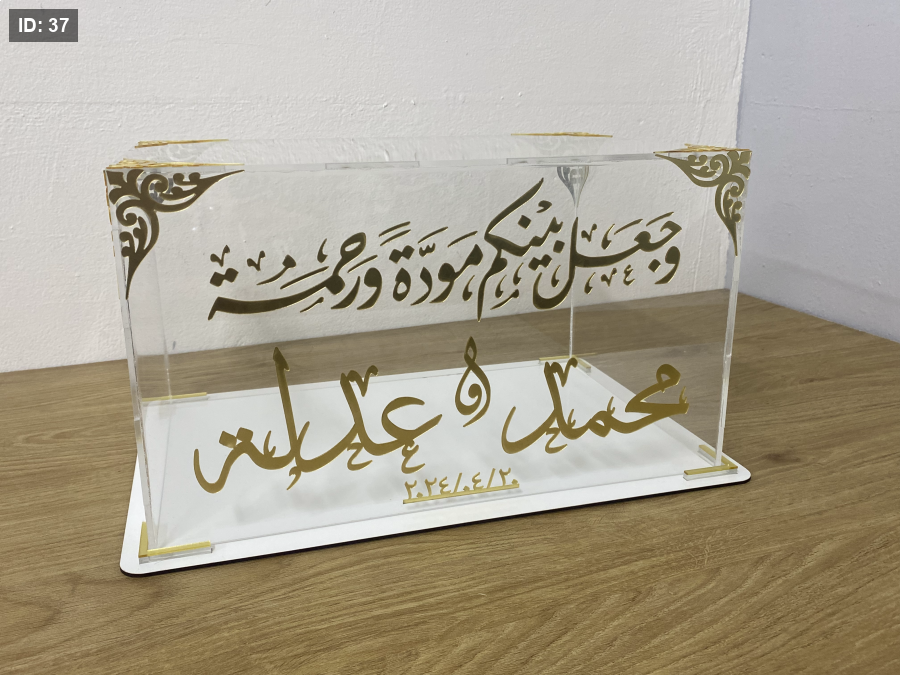 ID: 37
وجعل بينكم مودة ورحمة
محمد و عدلة
٢٠٢٤/٠٤/٢٠